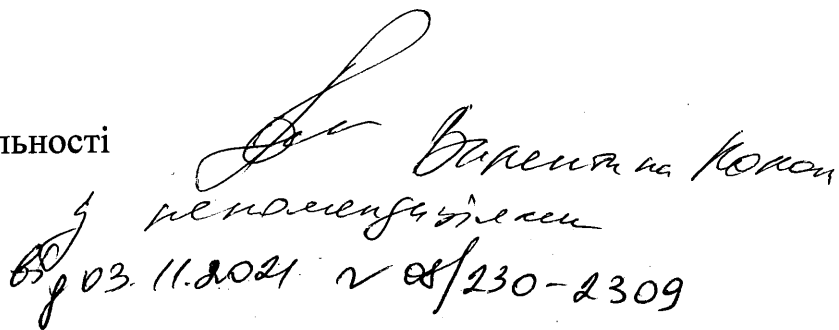 льності Валентина Конон
З рекомендаціями
від 03.11.2021 № 08/230-2309